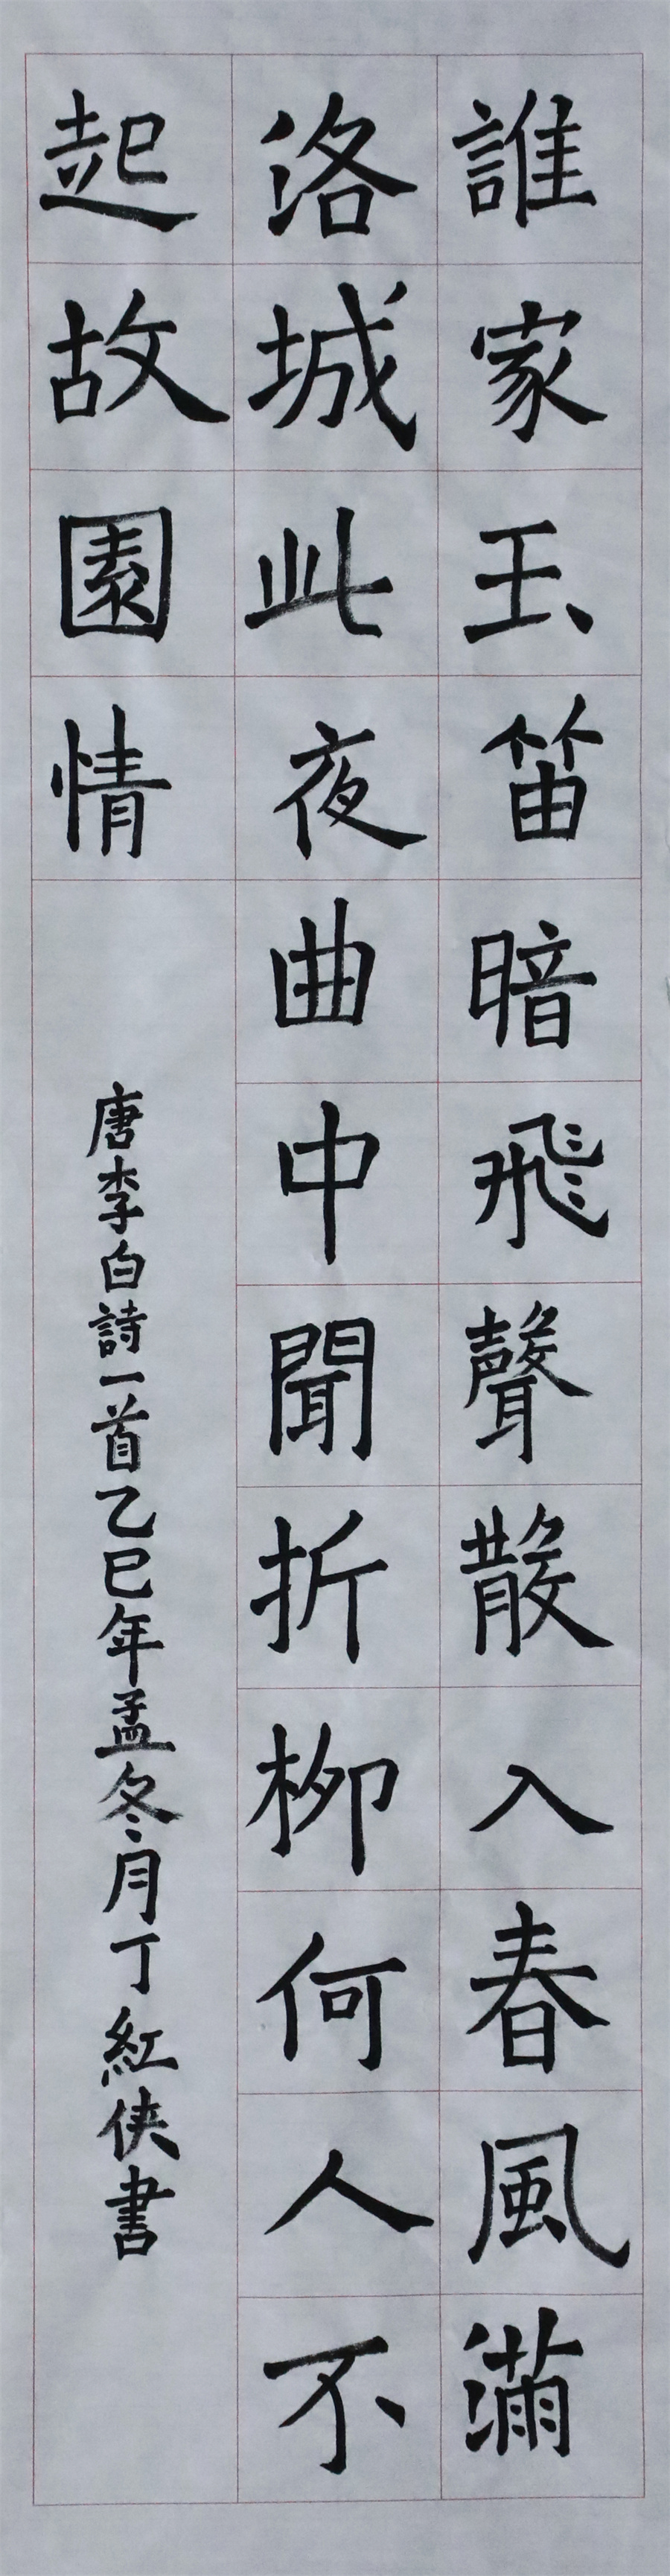 誰家玉笛暗飛聲散入春風滿
洛城此夜曲中聞折柳何人不
起故園情
唐李白詩一首乙巳年孟冬月丁紅俠書